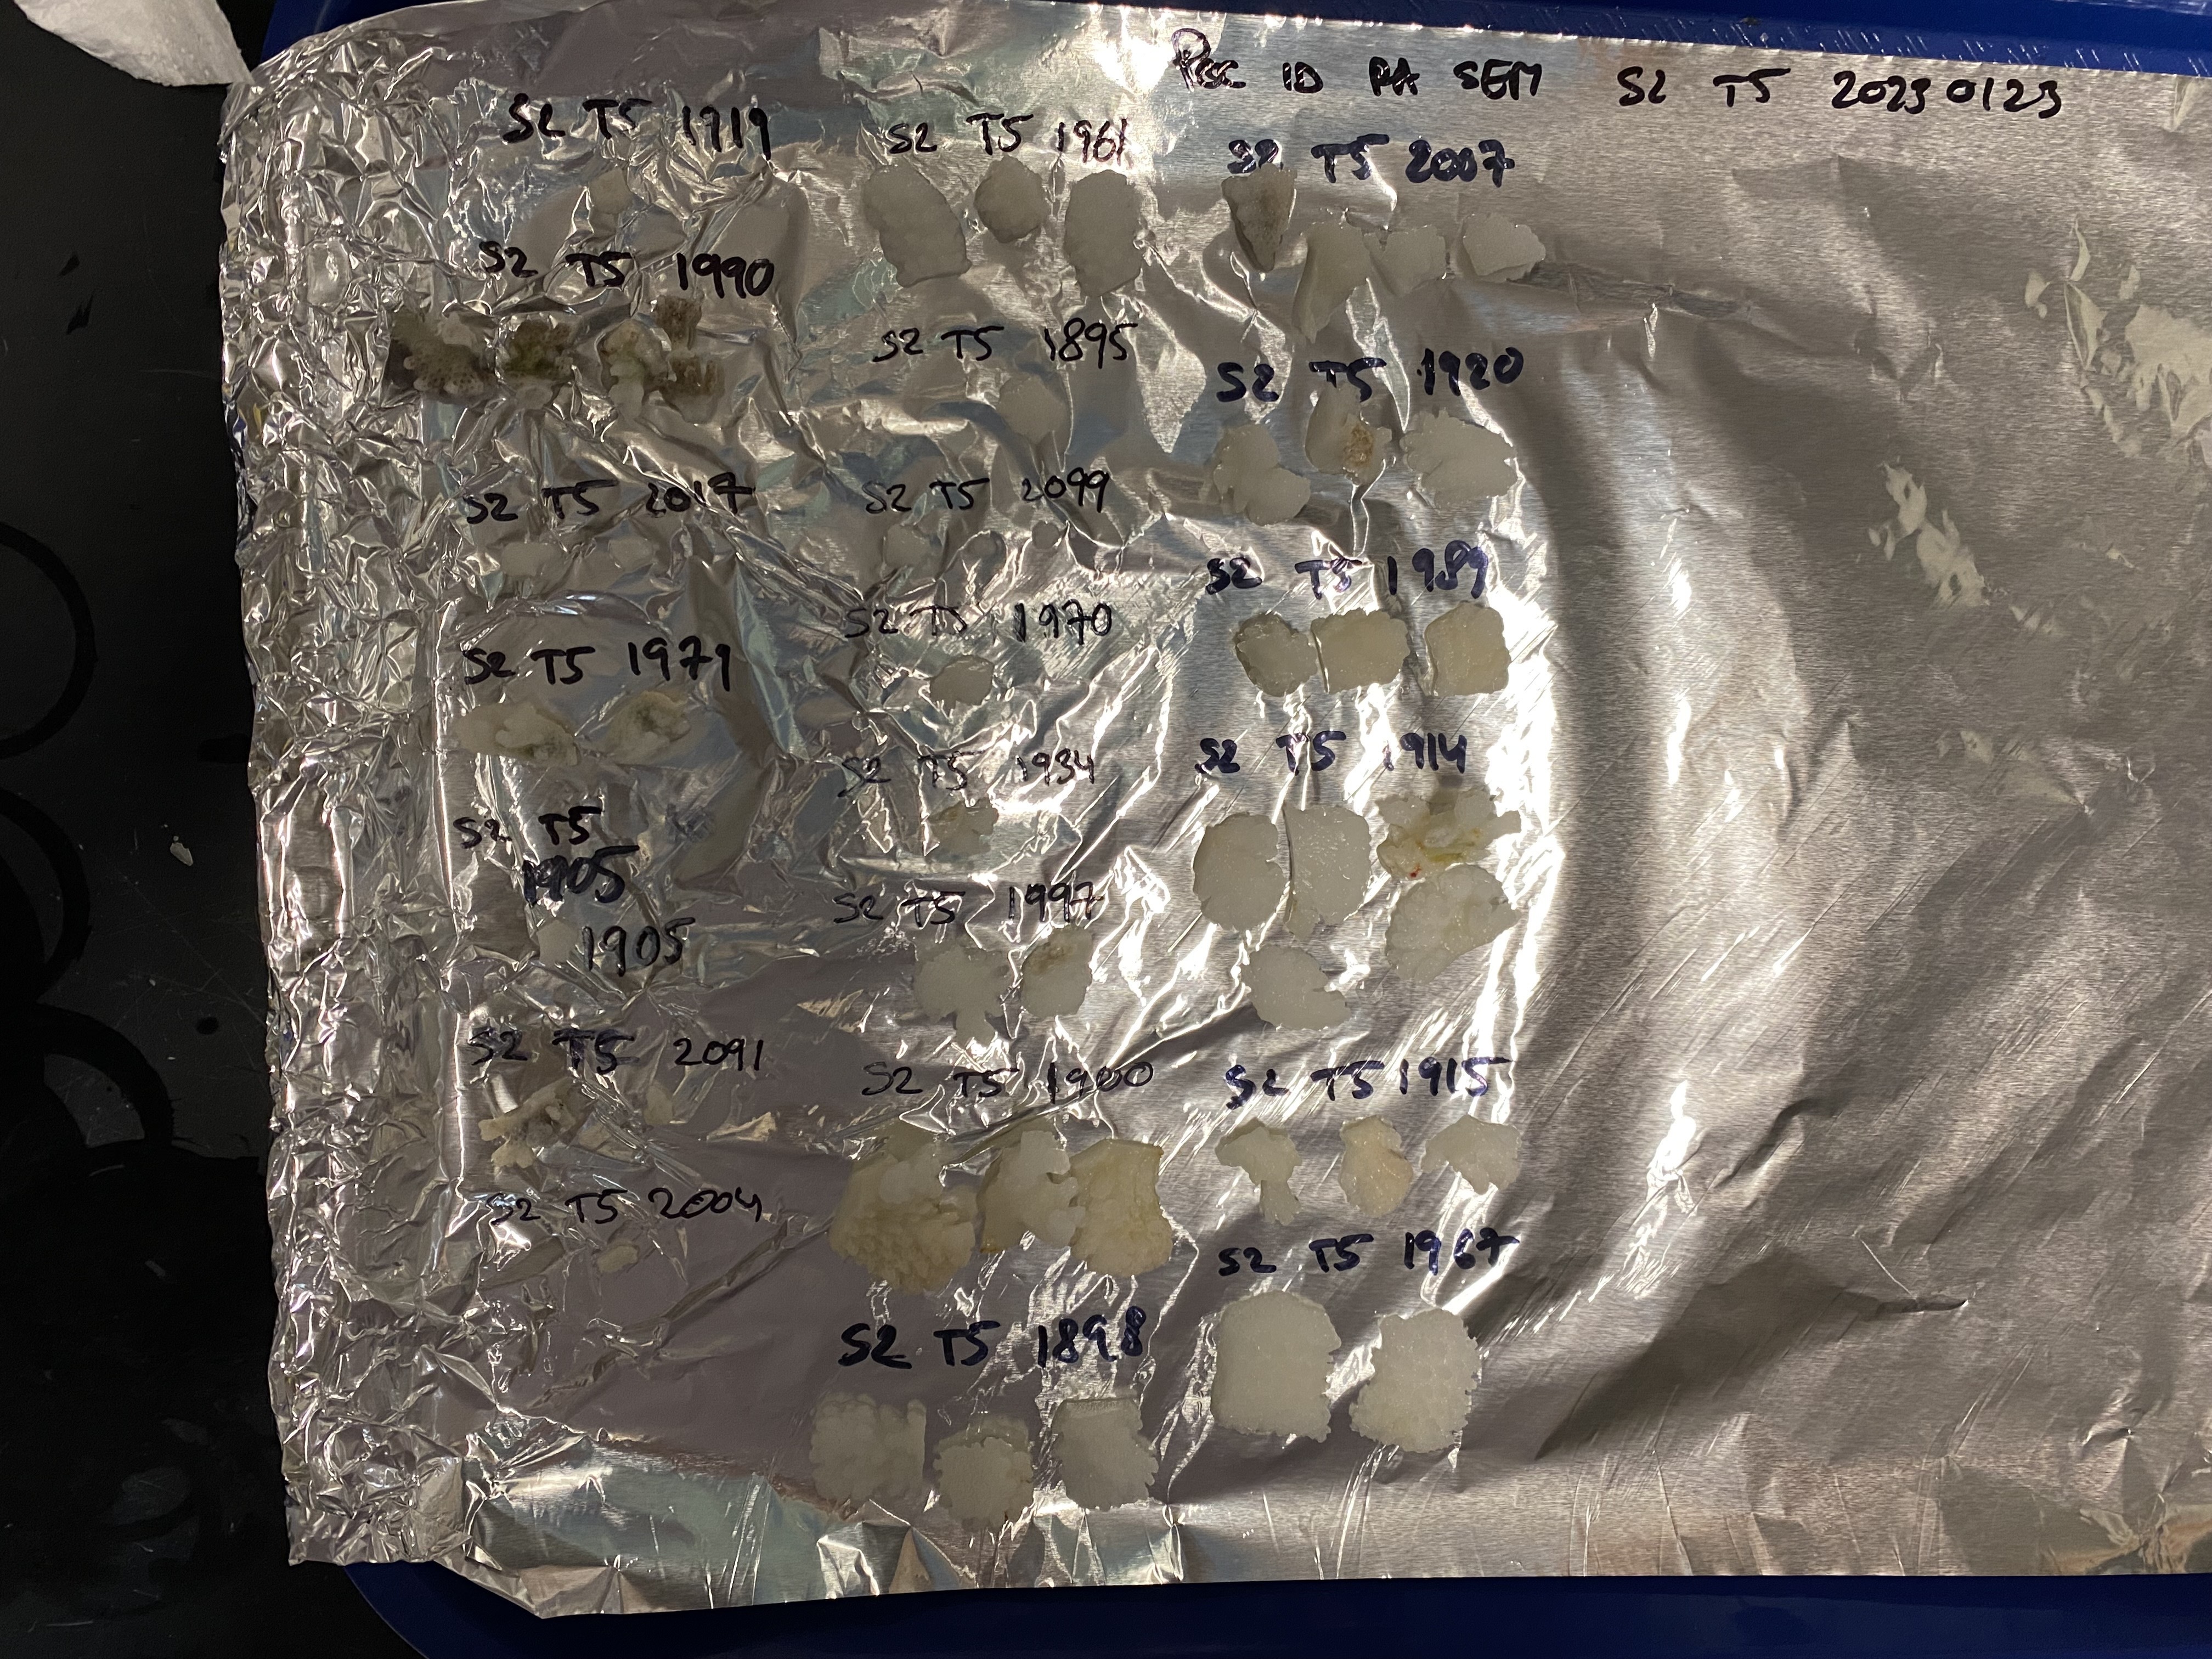 ID PA SEM S2 T5 20230123
S2 T5 1919
S2 T5 1990
S2 T5 2017
S2 T5 1979
S2 T5
1905
1905
S2 T5 2091
S2 T5 2004
S2 T5 1961
S2 T5 1895
S2 T5 2099
S2 T5 1970
S2 T5 1934
S2 T5 1997
S2 T5 1900
S2 T5 1898
S2 T5 2007
S2 T5 1920
S2 T5 1989
S2 T5 1914
S2 T5 1915
S2 T5 1967